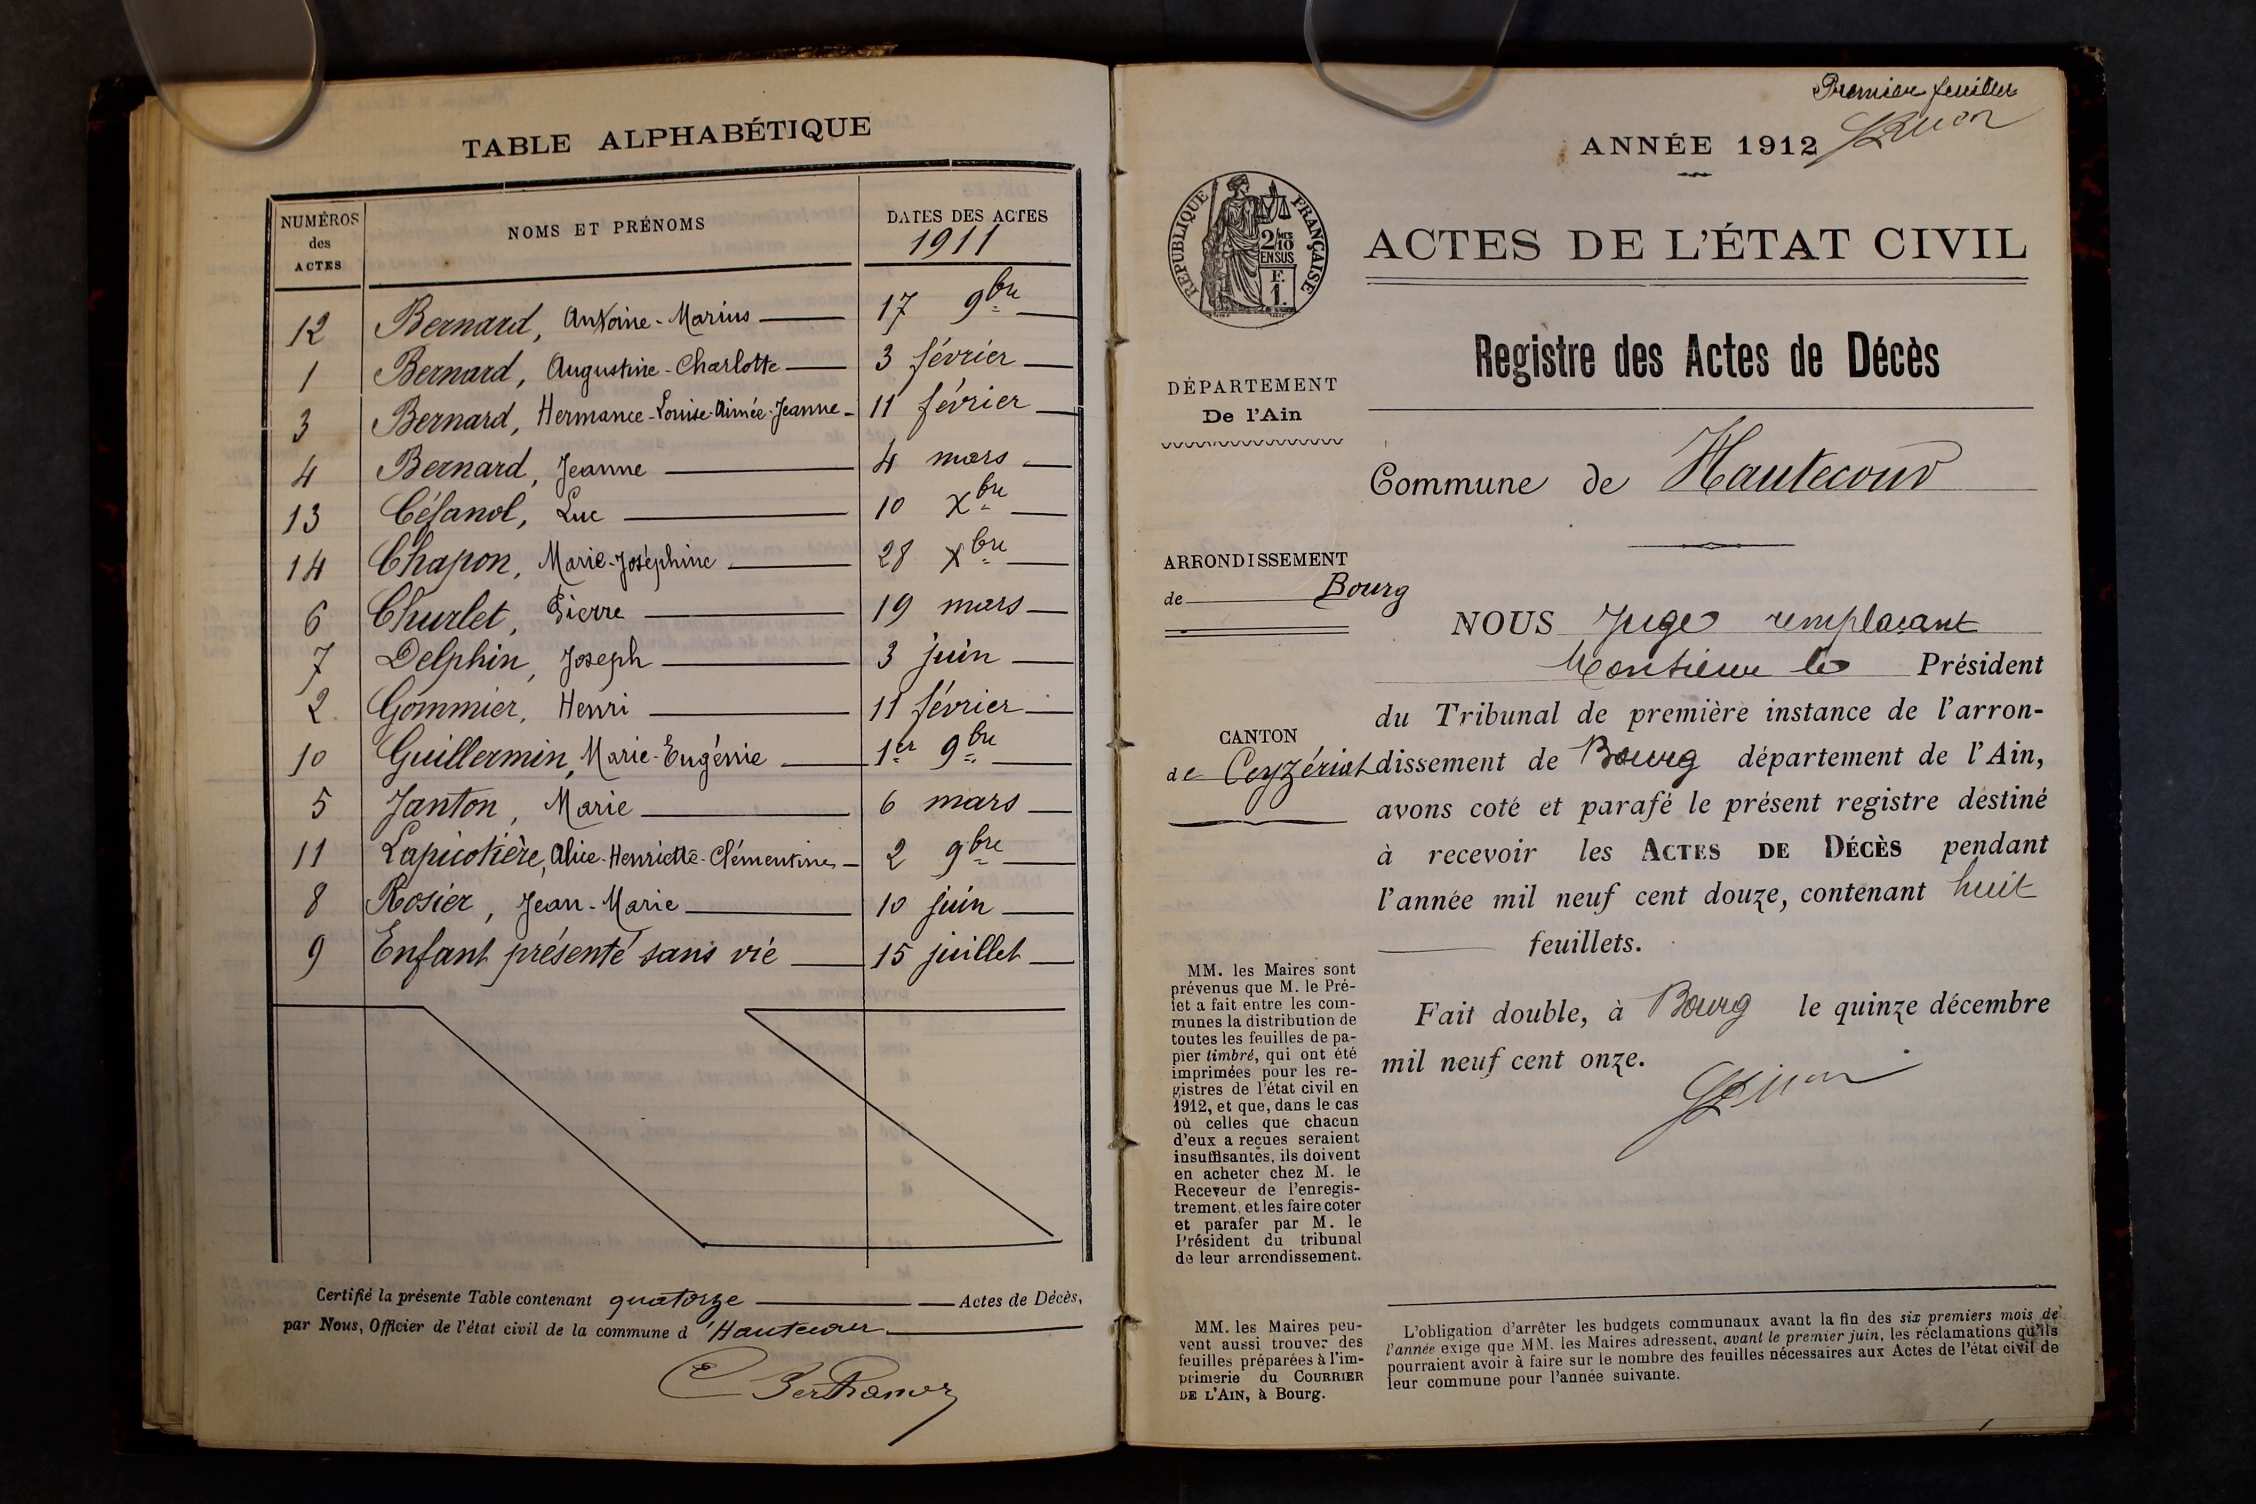 TABLE ALPHABÉTIQUE
NUMÉROS
des
ACTES
NOMS ET PRÉNOMS
DATES DES ACTES
1911
12 Bernard, Antoine-Marius 17 9bre
1 Bernard, Augustine-Charlotte 3 février
3 Bernard, Hermance-Louise-Aimée-Jeanne 11 février
4 Bernard, Jeanne 4 mars
13 Céfanol, Luc 10 Xbre
14 Chapon, Marie-Joséphine 28 Xbre
6 Churlet, Pierre 19 mars
7 Delphin, Joseph 3 juin
2 Gommier, Henri 11 février
10 Guillermin, Marie-Eugénie 1er 9bre
5 Janton, Marie 6 mars
11 Lapicotière, Alice-Henriette-Clémentine 2 9bre
8 Rosier, Jean-Marie 10 juin
9 Enfant présenté sans vie 15 juillet
Certifié la présente Table contenant quatorze Actes de Décès,
par Nous, Officier de l'état civil de la commune d'Hautecour
Premier feuillet
ANNÉE 1912
RÉPUBLIQUE FRANÇAISE
2/10 EN SUS
F.
1.
ACTES DE L'ÉTAT CIVIL
Registre des Actes de Décès
DÉPARTEMENT
De l'Ain
Commune de Hautecour
ARRONDISSEMENT
de Bourg
CANTON
de Ceyzériat
NOUS Juge remplaçant
Monsieur le Président
du Tribunal de première instance de l'arron-
dissement de Bourg département de l'Ain,
avons coté et parafé le présent registre destiné
à recevoir les ACTES DE DÉCÈS pendant
l'année mil neuf cent douze, contenant huit
feuillets.
Fait double, à Bourg le quinze décembre
mil neuf cent onze.
MM. les Maires sont
prévenus que M. le Pré-
fet a fait entre les com-
munes la distribution de
toutes les feuilles de pa-
pier timbré, qui ont été
imprimées pour les re-
gistres de l'état civil en
1912, et que, dans le cas
où celles que chacun
d'eux a reçues seraient
insuffisantes, ils doivent
en acheter chez M. le
Receveur de l'enregis-
trement, et les faire coter
et parafer par M. le
Président du tribunal
de leur arrondissement.
MM. les Maires peu-
vent aussi trouver des
feuilles préparées à l'im-
primerie du COURRIER
DE L'AIN, à Bourg.
L'obligation d'arrêter les budgets communaux avant la fin des six premiers mois de
l'année exige que MM. les Maires adressent, avant le premier juin, les réclamations qu'ils
pourraient avoir à faire sur le nombre des feuilles nécessaires aux Actes de l'état civil de
leur commune pour l'année suivante.